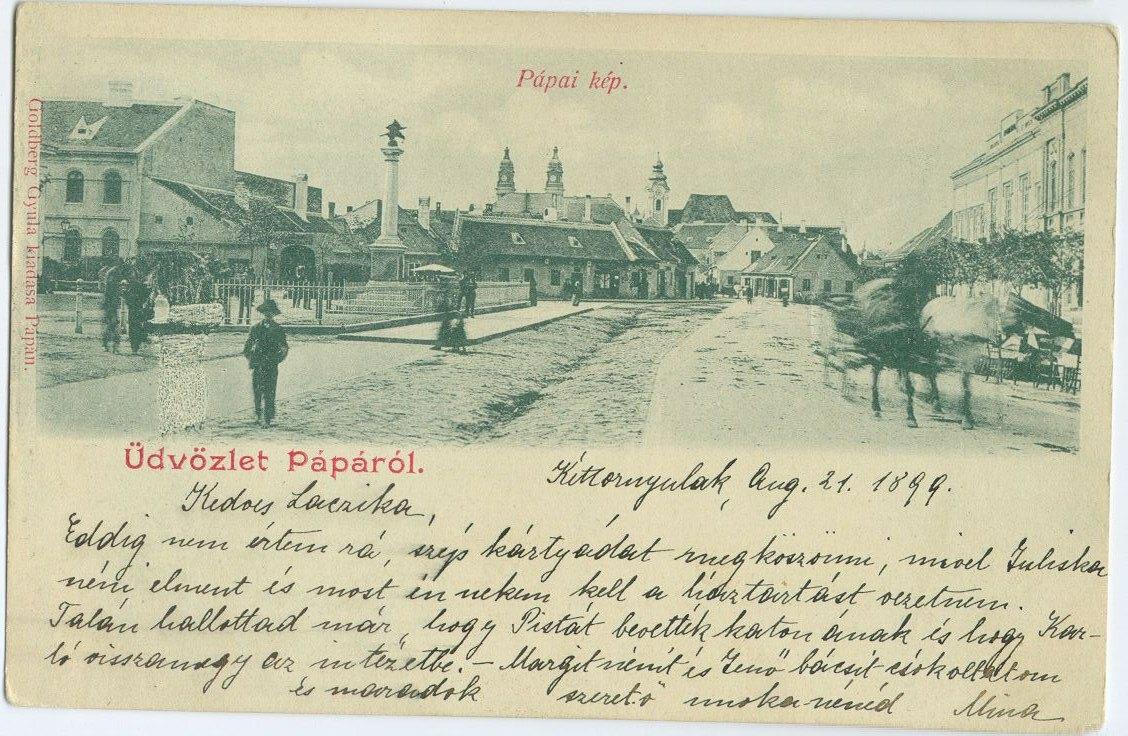 Pápai kép.
Goldberg Gyula kiadása Pápán.
Üdvözlet Pápáról.
Kéttornyulak, Aug. 21. 1899.
Kedves Laczika,
Eddig nem értem rá, szép kártyádat megköszönni, mivel Juliska
néni elment és most én nekem kell a háztartást vezetnem.
Talán hallottad már, hogy Pistát bevették katonának és hogy Kar-
ló visszamegy az intézetbe. – Margit nénit és Jenő bácsit csókoltatom
és maradok szerető unokanénéd Mina